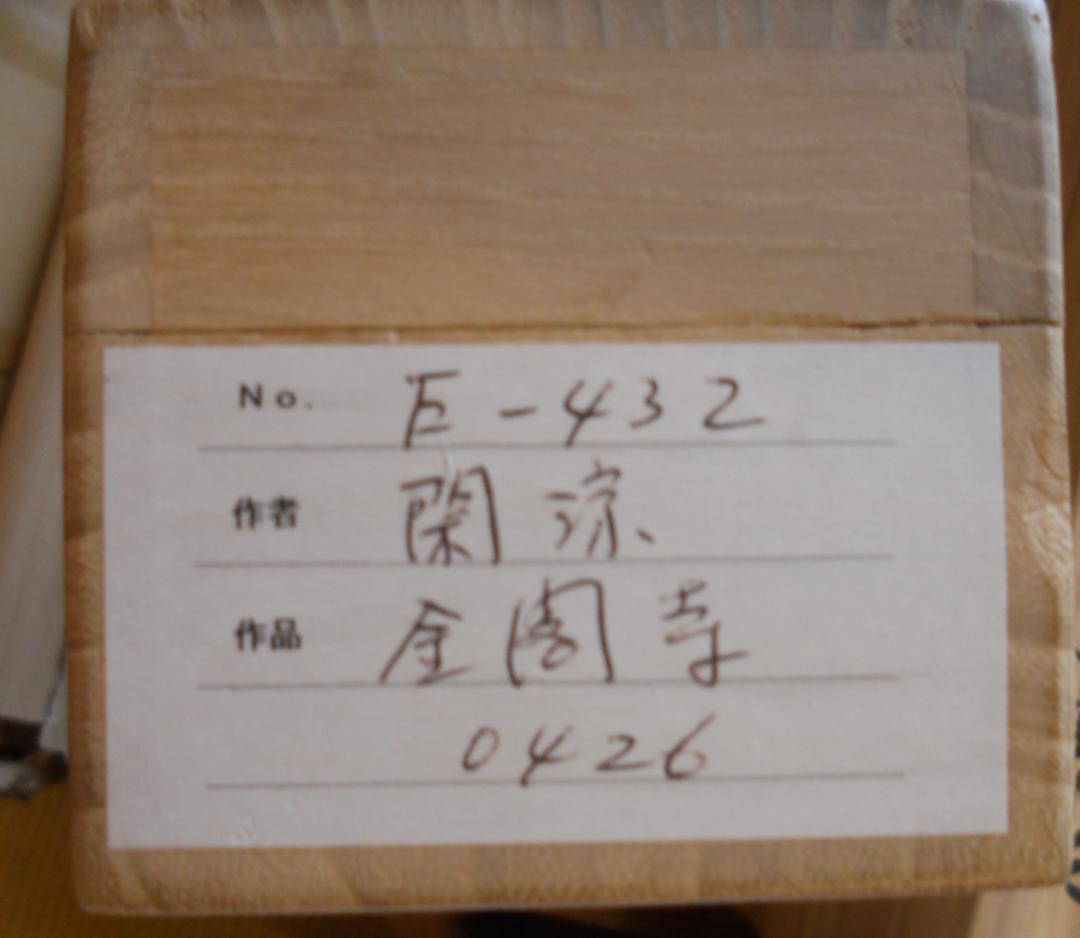 No. E-432
作者 関 涼
作品 金閣寺
0426